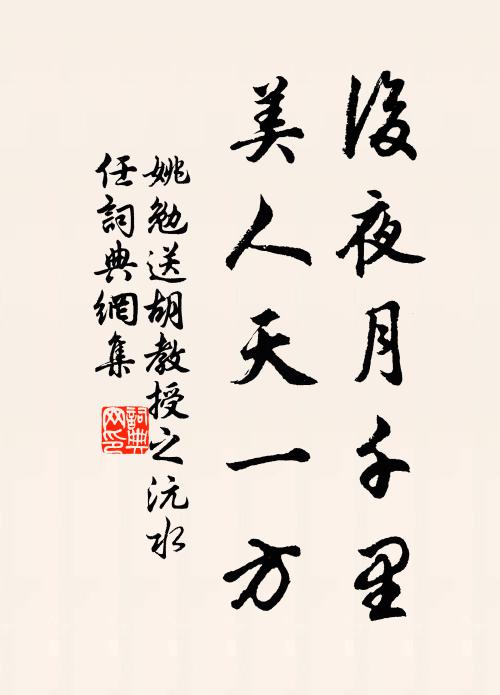 後夜月千里
美人天一方
姚勉送胡教授之沅水
任詞典網集
詞典
网印